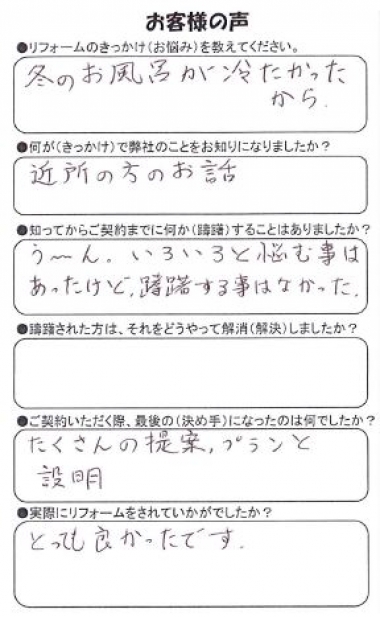 お客様の声
●リフォームのきっかけ(お悩み)を教えてください。
冬のお風呂が冷たかった
から.
●何が(きっかけ)で弊社のことをお知りになりましたか?
近所の方のお話
●知ってからご契約までに何か(躊躇)することはありましたか?
う〜ん。いろいろと悩む事は
あったけど,躊躇する事はなかった.
●躊躇された方は、それをどうやって解消(解決)しましたか?
●ご契約いただく際、最後の(決め手)になったのは何でしたか?
たくさんの提案,プランと
説明
●実際にリフォームをされていかがでしたか?
とっても良かったです.